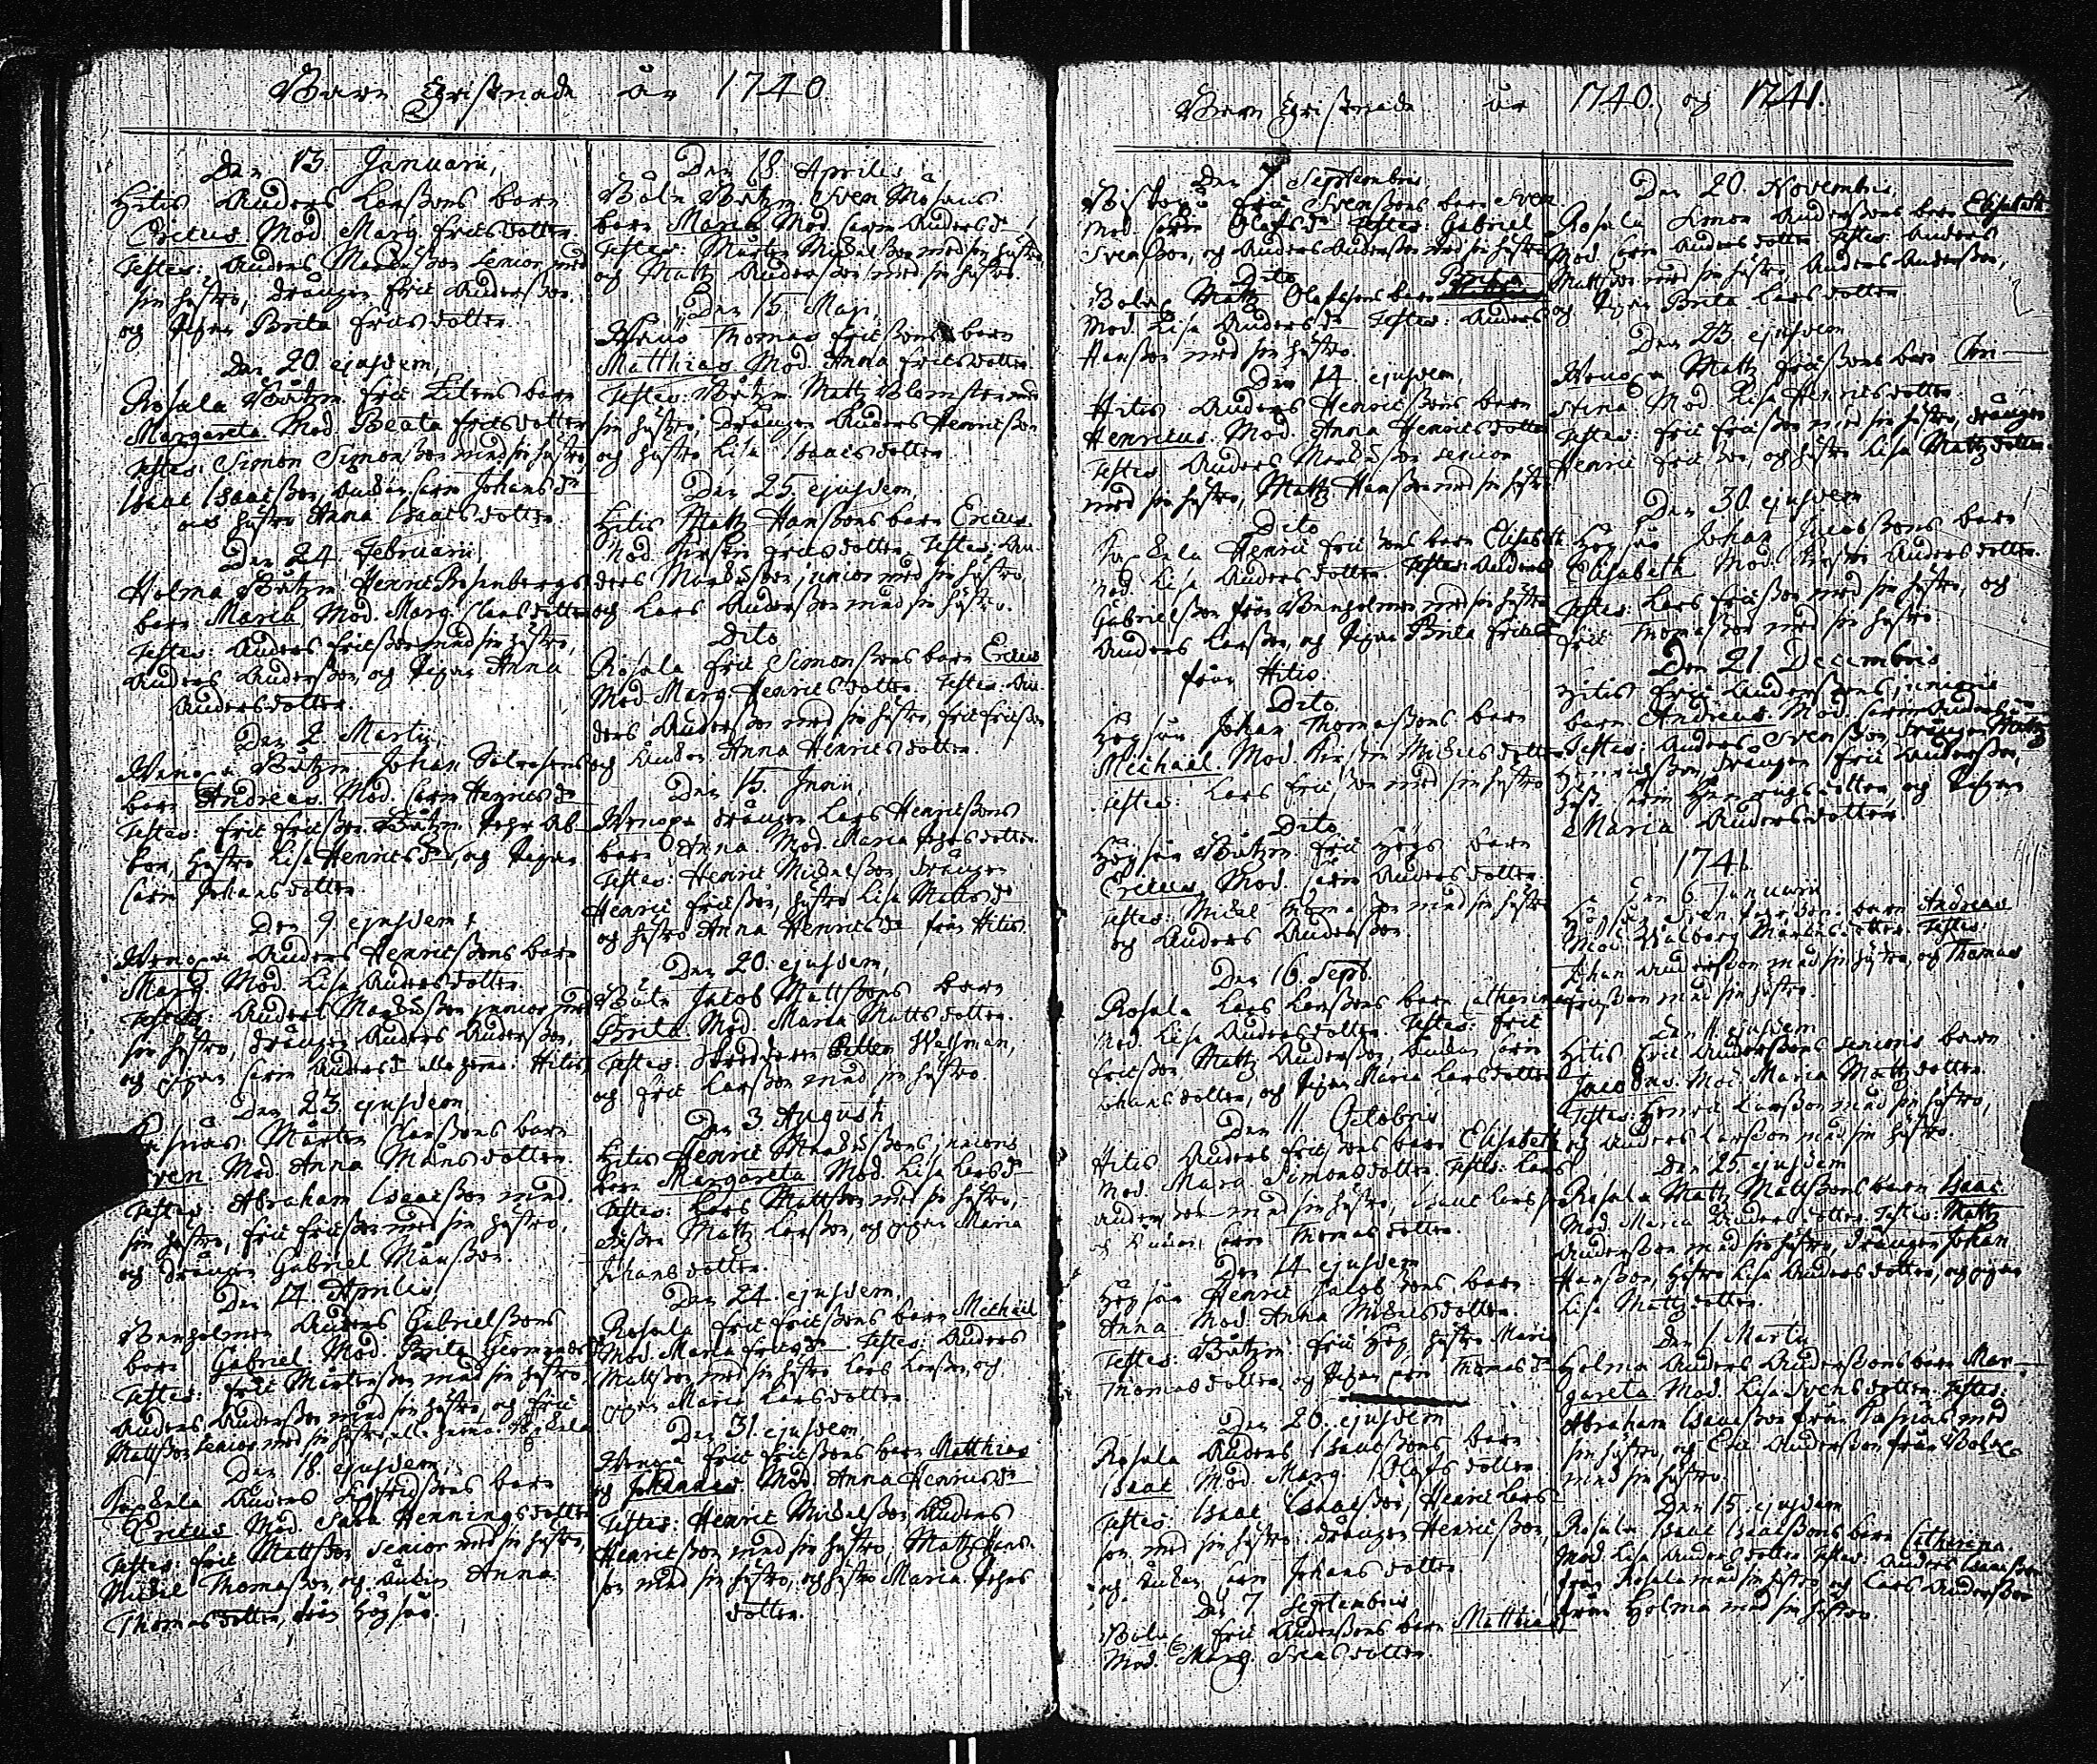 Barn Christnade år 1740
Den 13. Januarii,
Hitis Anders Larssons barn
Ericus Mod. Marg. Ericsdotter.
Testes: Anders Markusson Senior med
sin hustro, drängen Eric Andersson,
och pigan Brita Ericsdotter.
Den 20. ejusdem,
Rosala Båtzm. Eric barn
Margareta. Mod. Beata Ericsdotter
Testes: Simon Simonsson med sin hustro,
Isaac Isaacsson, änkan Carin Johansdr
och hustro Anna Isaacsdotter.
Den 24. Februarii
Holma Båtzm. Henric Rosenbergs
barn Maria Mod. Marg. Clasdotter
Testes: Anders Ericsson med sin hustro,
Anders Andersson, och pigan Anna
Andersdotter.
Den 2. Martii,
Wenoxa Båtzm. Johan
barn Andreas. Mod. Carin Henricsdr
Testes: Eric Ericsson Båtzm.
hustro Lisa Henricsdr, och pigan
Carin Johansdotter.
Den 9. ejusdem,
Wenoxa Anders Henricssons barn
Marg. Mod. Lisa Andersdotter.
Testes: Anders Markusson junior med
sin hustro, drängen Anders Andersson,
och pigan Carin Andersdr Hitis
Den 23. ejusdem,
Mårten Clarssons barn
Sven. Mod. Anna Månsdotter.
Testes: Abraham Isaacsson med
sin hustro, Eric Ericsson med sin hustro,
och drängen Gabriel Månsson.
Den 14. Aprilis
Benholmen Anders Gabrielssons
barn Gabriel. Mod. Brita
Testes: Eric Mårtensson med sin hustro,
Anders Andersson med sin hustro, och Eric
Mattsson Senior med sin hustro,
Den 18. ejusdem,
Anders Sigfridssons barn
Ericus Mod. Sara Henningsdotter
Testes: Eric Mattsson Senior med sin hustro,
Mickel Thomasson, och änkan Anna
Thomasdotter, från Högsår.
Den 18. Aprilis
Böle Båtzm. Sven
barn Maria Mod. Carin Andersdr
Testes: Mårten Mickelsson med sin hustro,
och Mattz Andersson med sin hustro
Den 15. Maji,
Thomas Ericssons barn
Matthias Mod. Anna Ericsdotter
Testes: Båtzm. Mattz Blomster med
sin hustro, drängen Anders Henricsson
och hustro Lisa Isaacsdotter
Den 25. ejusdem,
Hitis Mattz Hanssons barn Ericus.
Mod. Kirstin Ericsdotter. Testes: An-
ders Markusson junior med sin hustro,
och Lars Andersson med sin hustro.
Dito
Rosala Eric Simonssons barn Ericus
Mod. Marg. Henricsdotter. Testes: An-
ders Andersson med sin hustro, Eric Ericsson
och änkan Anna Henricsdotter.
Den 15. Junii,
Wenoxa drängen Lars Henricssons
barn Anna. Mod. Maria
Testes: Henric Mickelsson, drängen
Henric Ericsson, hustro Lisa Mattsdr
och hustro Anna Henricsdr från Hitis.
Den 20. ejusdem,
Böle Jacob Mattssons barn
Brita. Mod. Maria Mattsdotter.
Testes: Petter
och Eric Larsson med sin hustro.
Den 3. Augusti
Hitis Henric Markussons junioris
barn Margareta Mod. Lisa Larsdr
Testes: Lars Mattsson med sin hustro,
Mattz Larsson, och pigan Maria
Johansdotter.
Den 24. ejusdem,
Rosala Eric Ericssons barn Michaël
Mod. Maria Ericsdr. Testes: Anders
Mattsson med sin hustro Lars Larsson, och
pigan Maria Larsdotter.
Den 31. ejusdem
Wenoxa Eric Ericssons barn Matthias
och Johannes Mod. Anna Henricsdr
Testes: Henric Mickelsson, Anders
Henricsson med sin hustro, Mattz Hans-
son med sin hustro, och hustro Maria
dotter.
Barn Christnade år 1740. och 1741.
Den 7. Septembris
Eric Svenssons barn Sven
Mod. Carin Olofsdr Testes: Gabriel
Svensson, och Anders Andersson med sin hustro
Dito
Bolax Mattz Olofssons barn
Mod. Lisa Andersdr Testes: Anders
Hansson med sin hustro.
Den 14. ejusdem,
Hitis Anders Henricssons barn
Henricus. Mod. Anna Henricsdotter
Testes: Anders Markusson senior
med sin hustro, Mattz Hansson med sin hustro.
Dito
Henric Ericssons barn Elisabeth
Mod. Lisa Andersdotter. Testes: Anders
Gabrielsson från Benholmen med sin hustro
Anders Larsson, och pigan Brita Ericsdr
från Hitis.
Dito
Högsår Johan Thomassons barn
Michaël. Mod. Kirstin Mickelsdotter
Testes: Lars Ericsson med sin hustro
Dito
Högsår Båtzm. Eric Högs barn
Ericus. Mod. Carin Andersdotter.
Testes: Mickel Thomasson med sin hustro
och Anders Andersson.
Den 16. Sept.
Rosala Lars Larssons barn Catharina
Mod. Lisa Andersdotter. Testes: Eric
Ericsson, Mattz Andersson, änkan Carin
Johansdotter, och pigan Maria Larsdotter
Den 11 Octobris
Hitis Anders Ericssons barn Elisabeth
Mod. Maria Simonsdotter. Testes: Lars
Andersson med sin hustro, Isaac Larsson
och änkan Carin Thomasdotter.
Den 14 ejusdem
Högsår Henric Jacobssons barn
Anna Mod. Anna Mickelsdotter.
Testes: Båtzm. Eric Hög, hustro Maria
Thomasdotter, och pigan Thomasdr
Den 20. ejusdem
Rosala Anders Isaacssons barn
Isaac. Mod. Marg. Olofsdotter
Testes: Isaac Isaacsson, Henric Lars-
son med sin hustro, drängen Henricsson,
och änkan Carin Johansdotter
Den 7 Septembris
Bolax Eric Anderssons barn Matthias
Mod. Marg. Svensdotter.
Den 20 Novembris,
Rosala Simon Anderssons barn Elisabeth
Mod. Carin Andersdotter Testes: Anders
Mattsson med sin hustro, Anders Andersson,
och pigan Brita Larsdotter
Den 23. ejusdem
Wenoxa Mattz Ericssons barn Chri-
stina Mod. Lisa Henricsdotter
Testes: Eric Ericsson med sin hustro, drängen
Henric Ericsson och hustro Lisa Mattzdotter
Den 30. ejusdem
Högsår Johan Jacobssons barn
Elisabeth Mod. Kirstin Andersdotter.
Testes: Lars Ericsson med sin hustro, och
Eric Thomasson med sin hustro.
Den 21 Decembris
Hitis Eric Anderssons junioris
barn Andreas Mod. Carin Andersdr
Testes: Anders Svensson drängen Mattz
Henricsson, drängen Eric Andersson,
hust. Carin Henningsdotter, och pigan
Maria Andersdotter.
1741.
Den 6 Januarii
Högsår Sven barn Andreas
Mod. Walborg Testes:
Johan Andersson med sin hustro, och Thomas
Ericsson med sin hustro.
Den 11 ejusdem
Hitis Eric Anderssons senioris barn
Jacobus. Mod. Maria Mattzdotter.
Testes: Henric Larsson med sin hustro,
och Anders Larsson med sin hustro.
Den 25. ejusdem
Rosala Mattz Mattssons barn Isaac.
Mod. Maria Andersdotter. Testes: Mattz
Andersson med sin hustro, drängen Johan
Hansson, hustro Lisa Andersdotter, och pigan
Lisa Mattzdotter.
Den 1 Martii
Holma Anders Anderssons barn Mar-
gareta. Mod. Lisa Svensdotter. Testes:
Abraham Isaacsson från med
sin hustro, och Eric Andersson från Bolax
med sin hustro.
Den 15. ejusdem
Rosala Isaac Isaacssons barn Catharina.
Mod. Lisa Andersdotter Testes: Anders Isaacsson
från Rosala med sin hustro och Lars Andersson
från Holma med sin hustro.